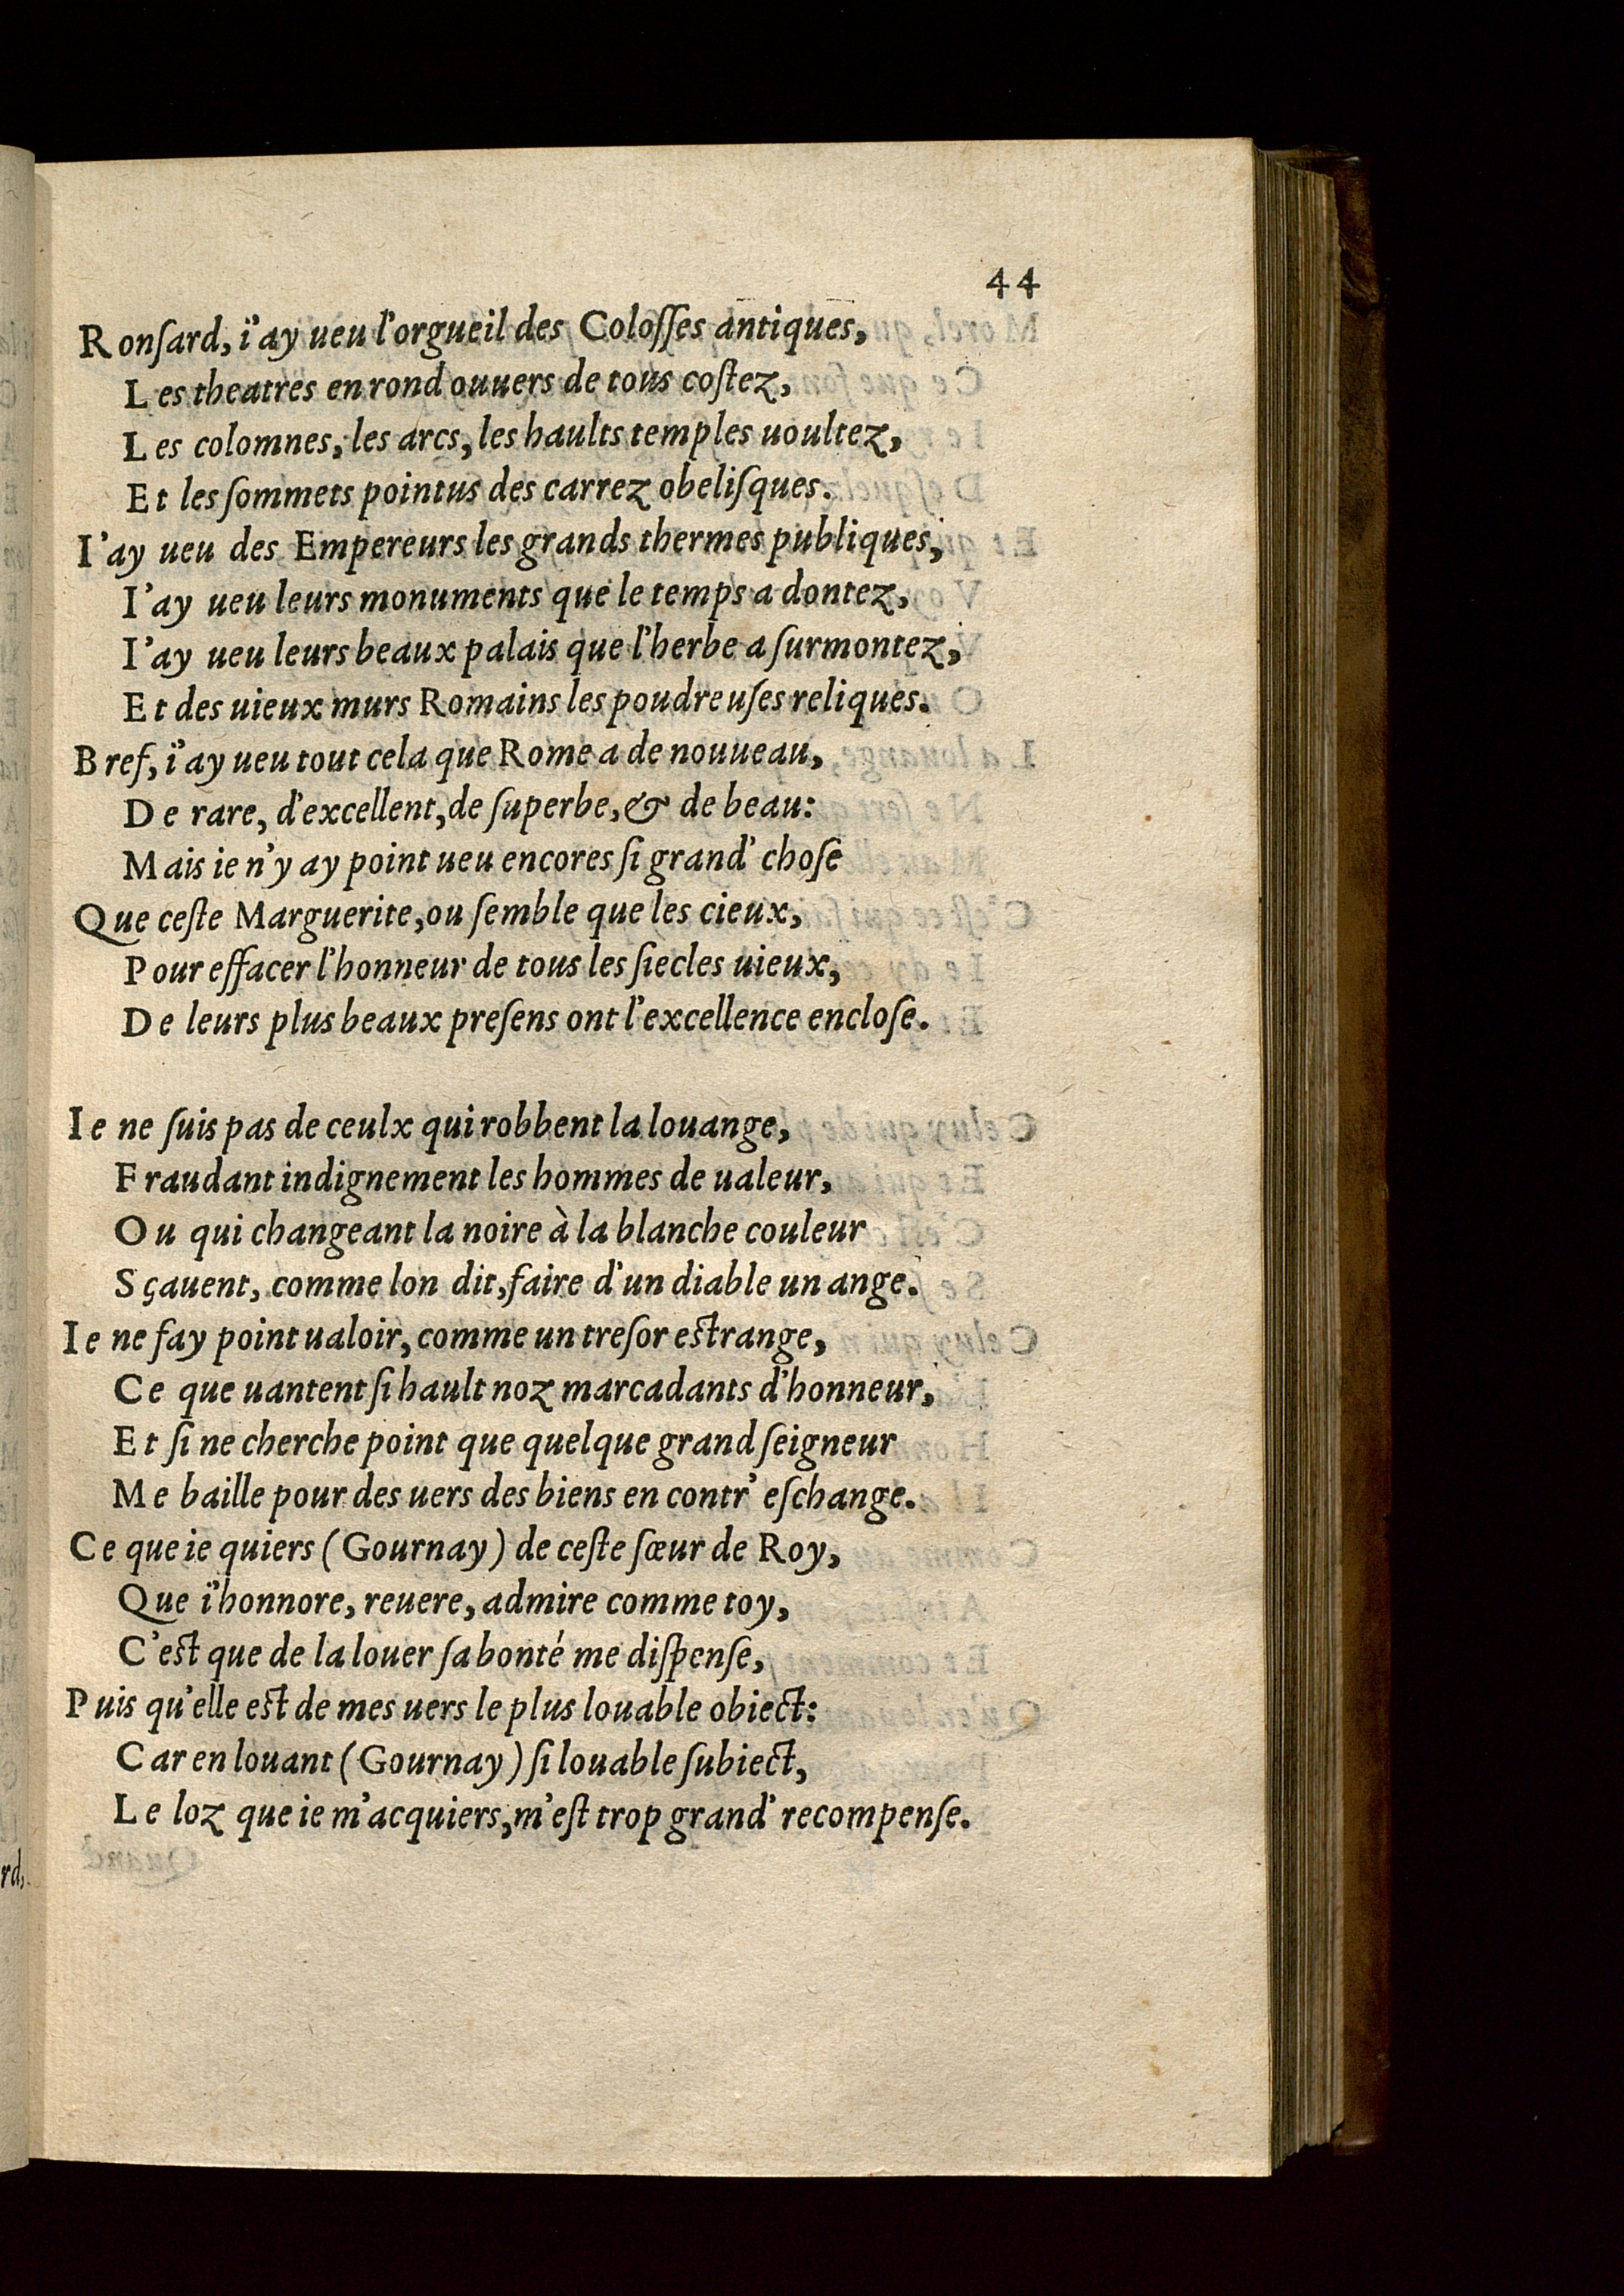 44
Ronſard, i'ay ueu l'orgueil des Coloſſes antiques,
Les theatres en rond ouuers de tous coſtez,
Les colomnes, les arcs, les haults temples uoultez,
Et les ſommets pointus des carrez obeliſques.
I'ay ueu des Empereurs les grands thermes publiques,
I'ay ueu leurs monuments que le temps a dontez,
I'ay ueu leurs beaux palais que l'herbe a ſurmontez,
Et des uieux murs Romains les poudreuſes reliques.
Bref, i'ay ueu tout cela que Rome a de nouueau,
De rare, d'excellent, de ſuperbe, & de beau:
Mais ie n'y ay point ueu encores ſi grand' choſe
Que ceſte Marguerite, ou ſemble que les cieux,
Pour effacer l'honneur de tous les ſiecles uieux,
De leurs plus beaux preſens ont l'excellence encloſe.
Ie ne ſuis pas de ceulx qui robbent la louange,
Fraudant indignement les hommes de ualeur,
Ou qui changeant la noire à la blanche couleur
Sçauent, comme lon dit, faire d'un diable un ange.
Ie ne fay point ualoir, comme un treſor eſtrange,
Ce que uantent ſi hault noz marcadants d'honneur,
Et ſi ne cherche point que quelque grand ſeigneur
Me baille pour des uers des biens en contr' eſchange.
Ce que ie quiers (Gournay) de ceſte ſœur de Roy,
Que i'honnore, reuere, admire comme toy,
C'eſt que de la louer ſa bonté me diſpenſe,
Puis qu'elle eſt de mes uers le plus louable obiect:
Car en louant (Gournay) ſi louable ſubiect,
Le loz que ie m'acquiers, m'eſt trop grand' recompenſe.
rd,